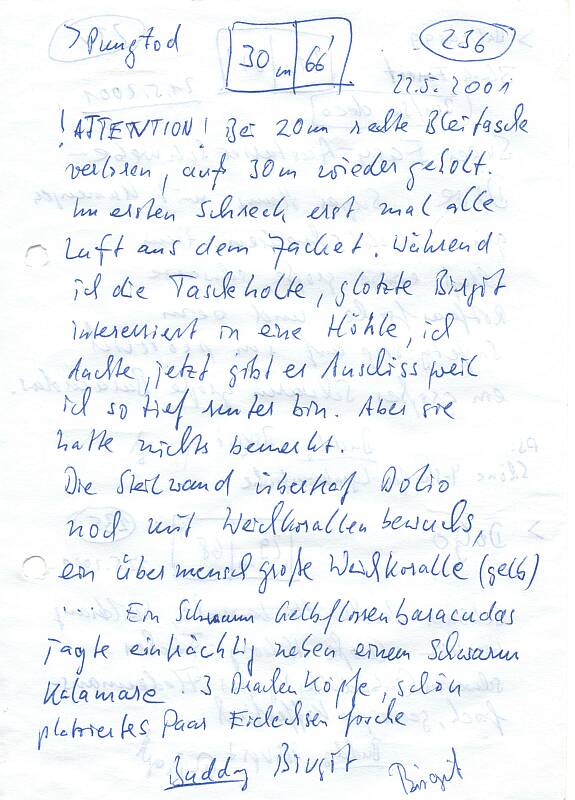 > Pungtod 30 m 66' 236
22.5.2001
! ATTENTION! Bei 20m rechte Bleitasche
verloren, auf 30m wiedergeholt.
Im ersten Schreck erst mal alle
Luft aus dem Jacket. Während
ich die Tasche holte, glotzte Birgit
interessiert in eine Höhle, ich
dachte, jetzt gibt es Anschiss weil
ich so tief runter bin. Aber sie
hatte nichts bemerkt.
Die Steilwand übertraf Doljo
noch mit Weichkorallenbewuchs,
ein übermenschgroße Weichkoralle (gelb)
.... Ein Schwarm Gelbflossenbaracudas
jagte einträchtig neben einem Schwarm
Kalamare. 3 Drachenköpfe, schön
platziertes Paar Eidechsen
Buddy Birgit Birgit